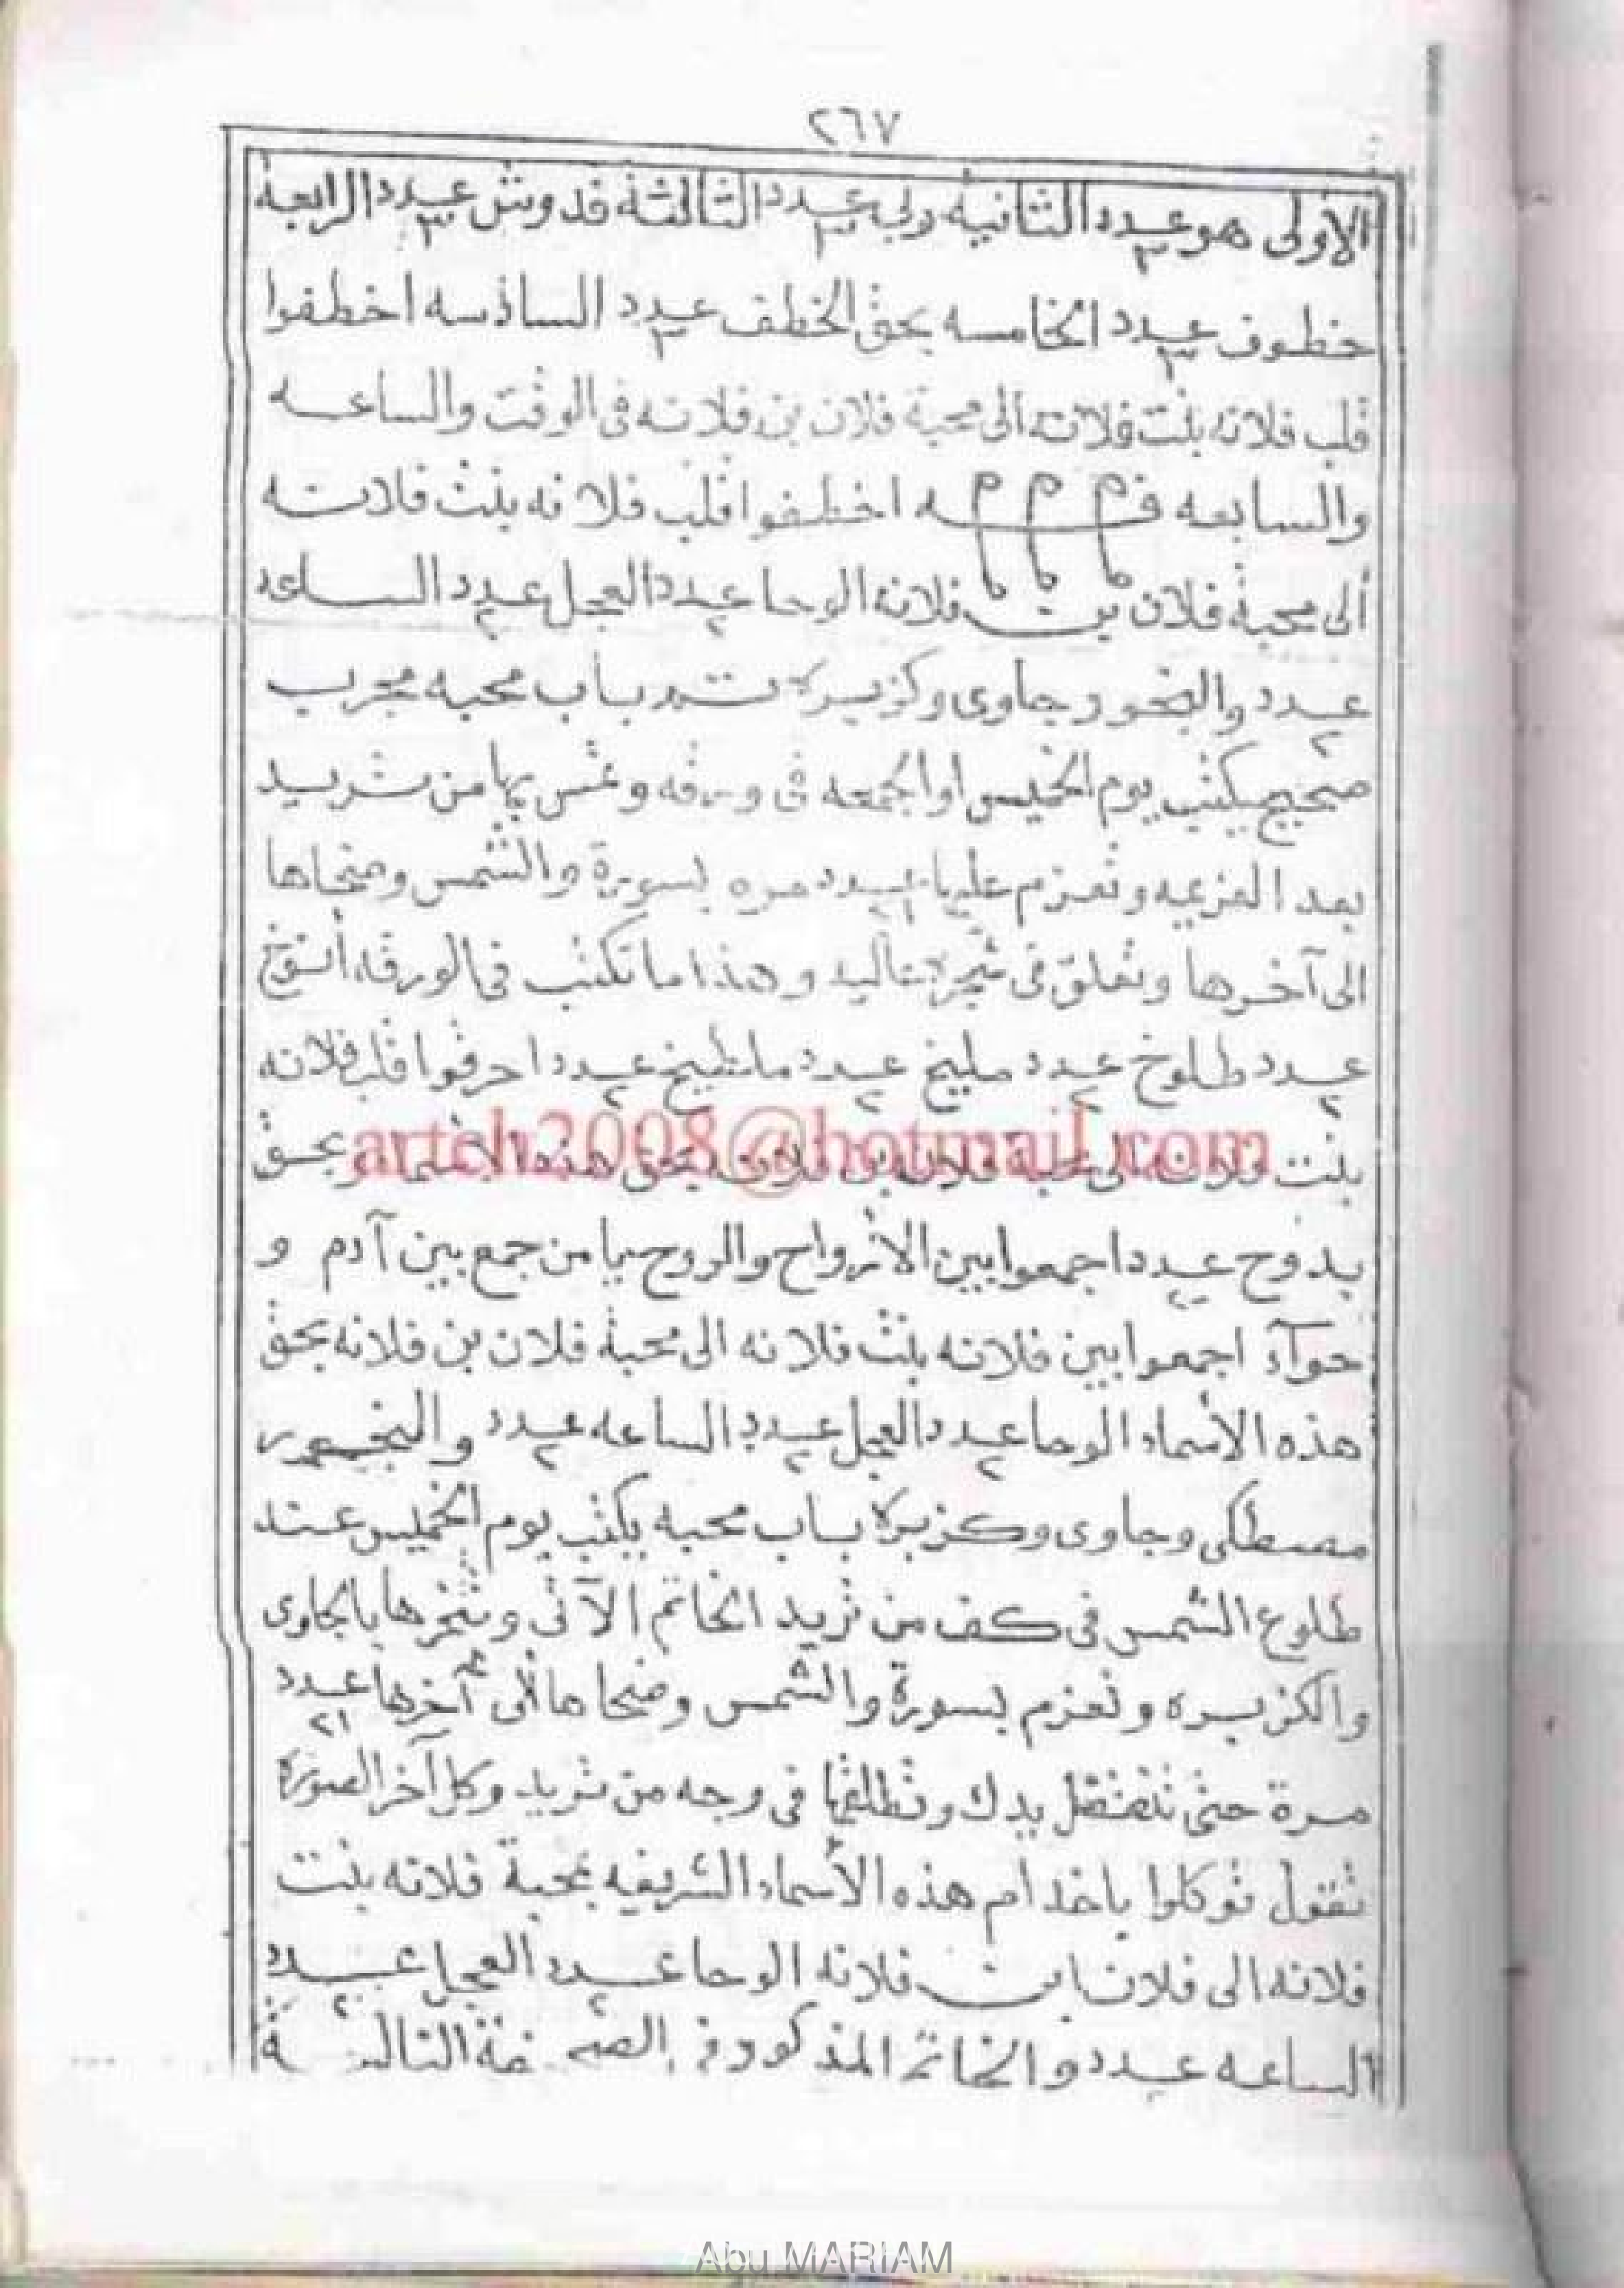 ٢٦٧
الاولى هو عدد ٣ الثانيه ولى عدد ٣ الثالثة قدوش عدد ٣ الرابعه
خطوف عدد ٣ الخامسه بحق الخطف عدد ٣ السادسه اخطفوا
قلب فلانه بنت فلانه الى محبة فلان بن فلانه فى الوقت والساعه
والسابعه اخطفوا قلب فلانه بنت فلانه
ألى محبة فلان بن فلانه الوحا عدد ٢ العجل عدد ٢ الساعه
عدد ٢ والبخور جاوى وكزبره تمت باب محبه مجرب
صحيح يكتب يوم الخميس او الجمعه فى ورقه وتمس بها من تريد
بعد العزيمه وتعزم عليها عدد ٢١ مره بسورة والشمس وضحاها
الى آخرها وتعلق فى شجرة عاليه وهذا ما تكتب فى الورقه
عدد ٢ طلوخ عدد ٢ مليخ عدد ٢ عدد ٢ احرقوا قلب فلانه
artch2008@hotmail.com
بنت فلانه الى محبة فلان بن فلانه بحق هذه الاسماء وبحق
بدوح عدد ٢ اجمعوا بين الأرواح والروح يا من جمع بين آدم و
حوآء اجمعوا بين فلانه بنت فلانه الى محبة فلان بن فلانه بحق
هذه الأسماء الوحا عدد ٢ العجل عدد ٢ الساعه عدد ٢ والبخور
مصطكى وجاوى وكزبره باب محبه يكتب يوم الخميس عند
طلوع الشمس فى كف من تريد الخاتم الآتى وتبخرها بالجاوى
والكزبره وتعزم بسورة والشمس وضحاها ألى آخرها عدد ٢١
مرة حتى يدك وتطلقها فى وجه من تريد وكل آخر الصورة
تقول توكلوا يا خدام هذه الأسماء الشريفه بمحبة فلانه بنت
فلانه الى فلان ابن فلانه الوحا عدد ٢ العجل عدد ٢
الساعه عدد والخاتم المذكور فى الصحفة التاليـة
Abu MARIAM